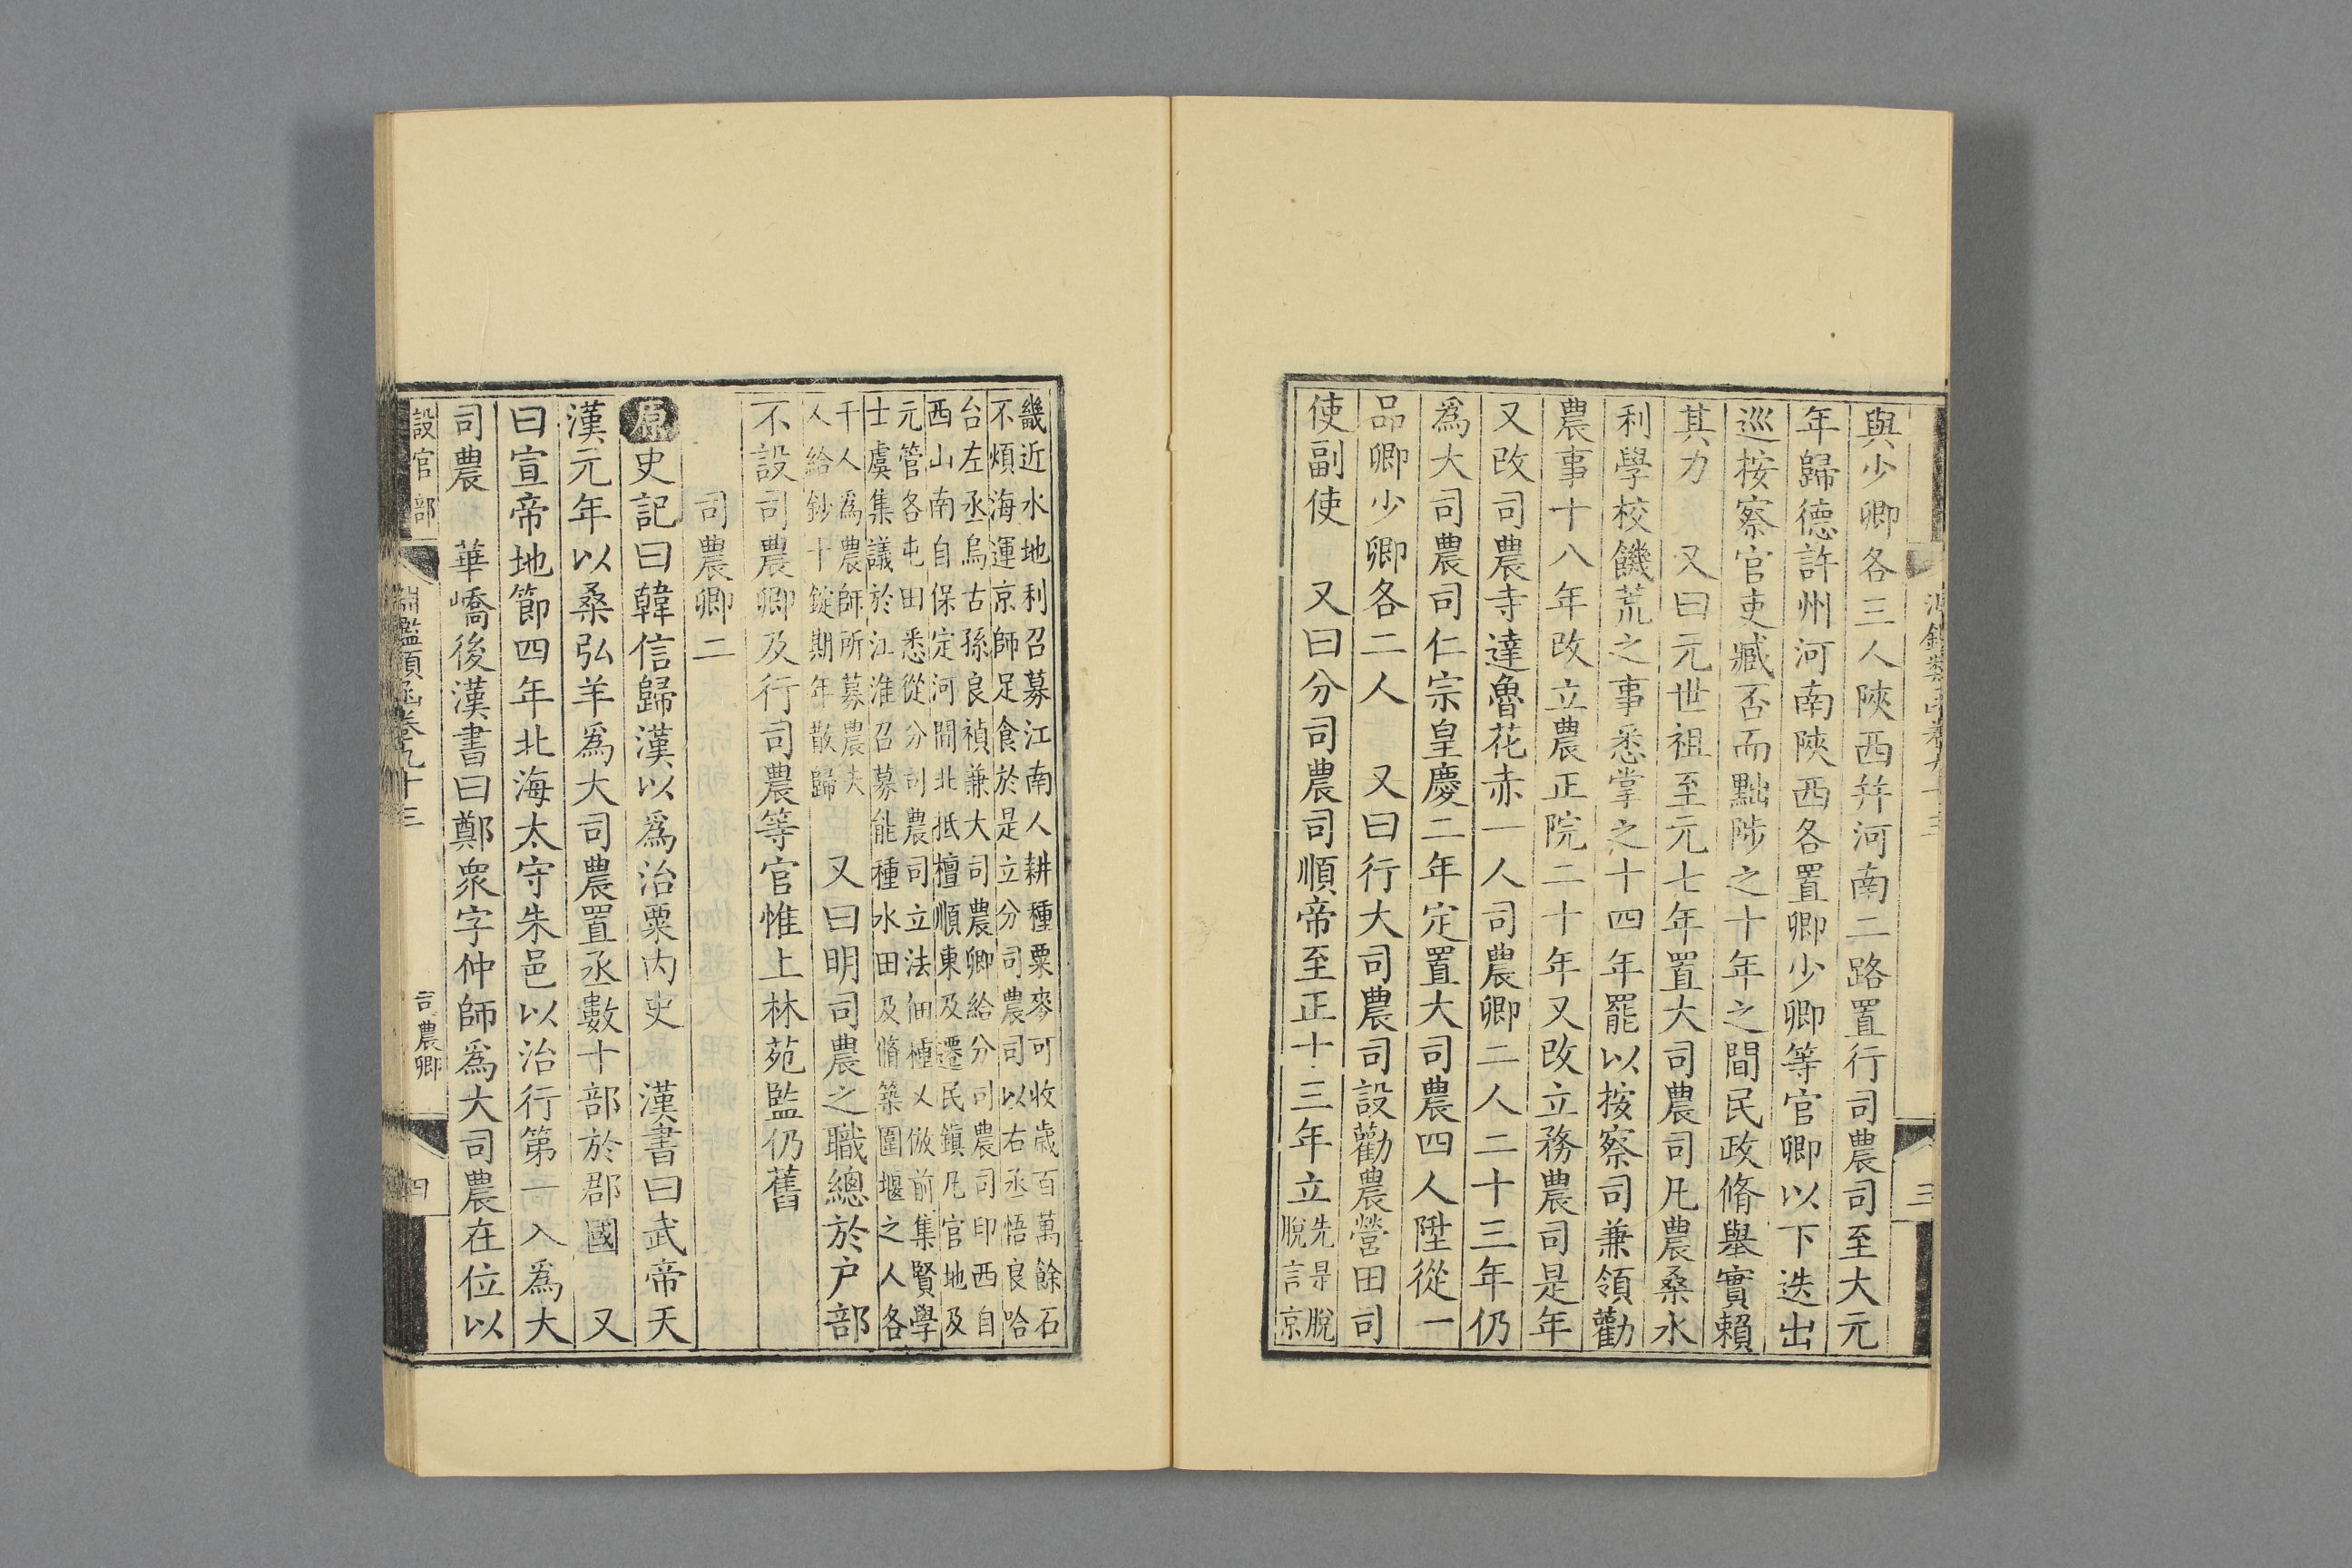 與少卿各三人陜西幷河南二路置行司農司至大元
年歸德許州河南陜西各置卿少卿等官卿以下迭出
巡按察官吏臧否而黜陟之十年之間民政脩舉實賴
其力　又曰元世祖至元七年置大司農司凡農桑水
利學校饑荒之事悉掌之十四年罷以按察司兼領勸
農事十八年改立農正院二十年又改立務農司是年
又改司農寺達魯花赤一人司農卿二人二十三年仍
爲大司農司仁宗皇慶二年定置大司農四人陞從一
品卿少卿各二人　又曰行大司農司設勸農營田司
使副使　又曰分司農司順帝至正十三年立
先是脫
脫言京
三
畿近水地利召募江南人耕種粟麥可收歲百萬餘石
不煩海運京師足食於是立分司農司以右丞悟良哈
台左丞烏古孫良禎兼大司農卿給分司農司印西自
西山南自保定河間北抵檀順東及遷民鎮凡官地及
元管各屯田悉從分司農司立法佃種又倣前集賢學
士虞集議於江淮召募能種水田及脩築圍堰之人各
千人爲農師所募農夫
人給鈔十錠期年散歸
又曰明司農之職總於户部
不設司農卿及行司農等官惟上林苑監仍舊
司農卿二
原史記曰韓信歸漢以爲治粟內史　漢書曰武帝天
漢元年以桑弘羊爲大司農置丞數十部於郡國　又
曰宣帝地節四年北海太守朱邑以治行第一入爲大
司農　華嶠後漢書曰鄭衆字仲師爲大司農在位以
設官部
淵鑑類函卷九十三
司農卿
四